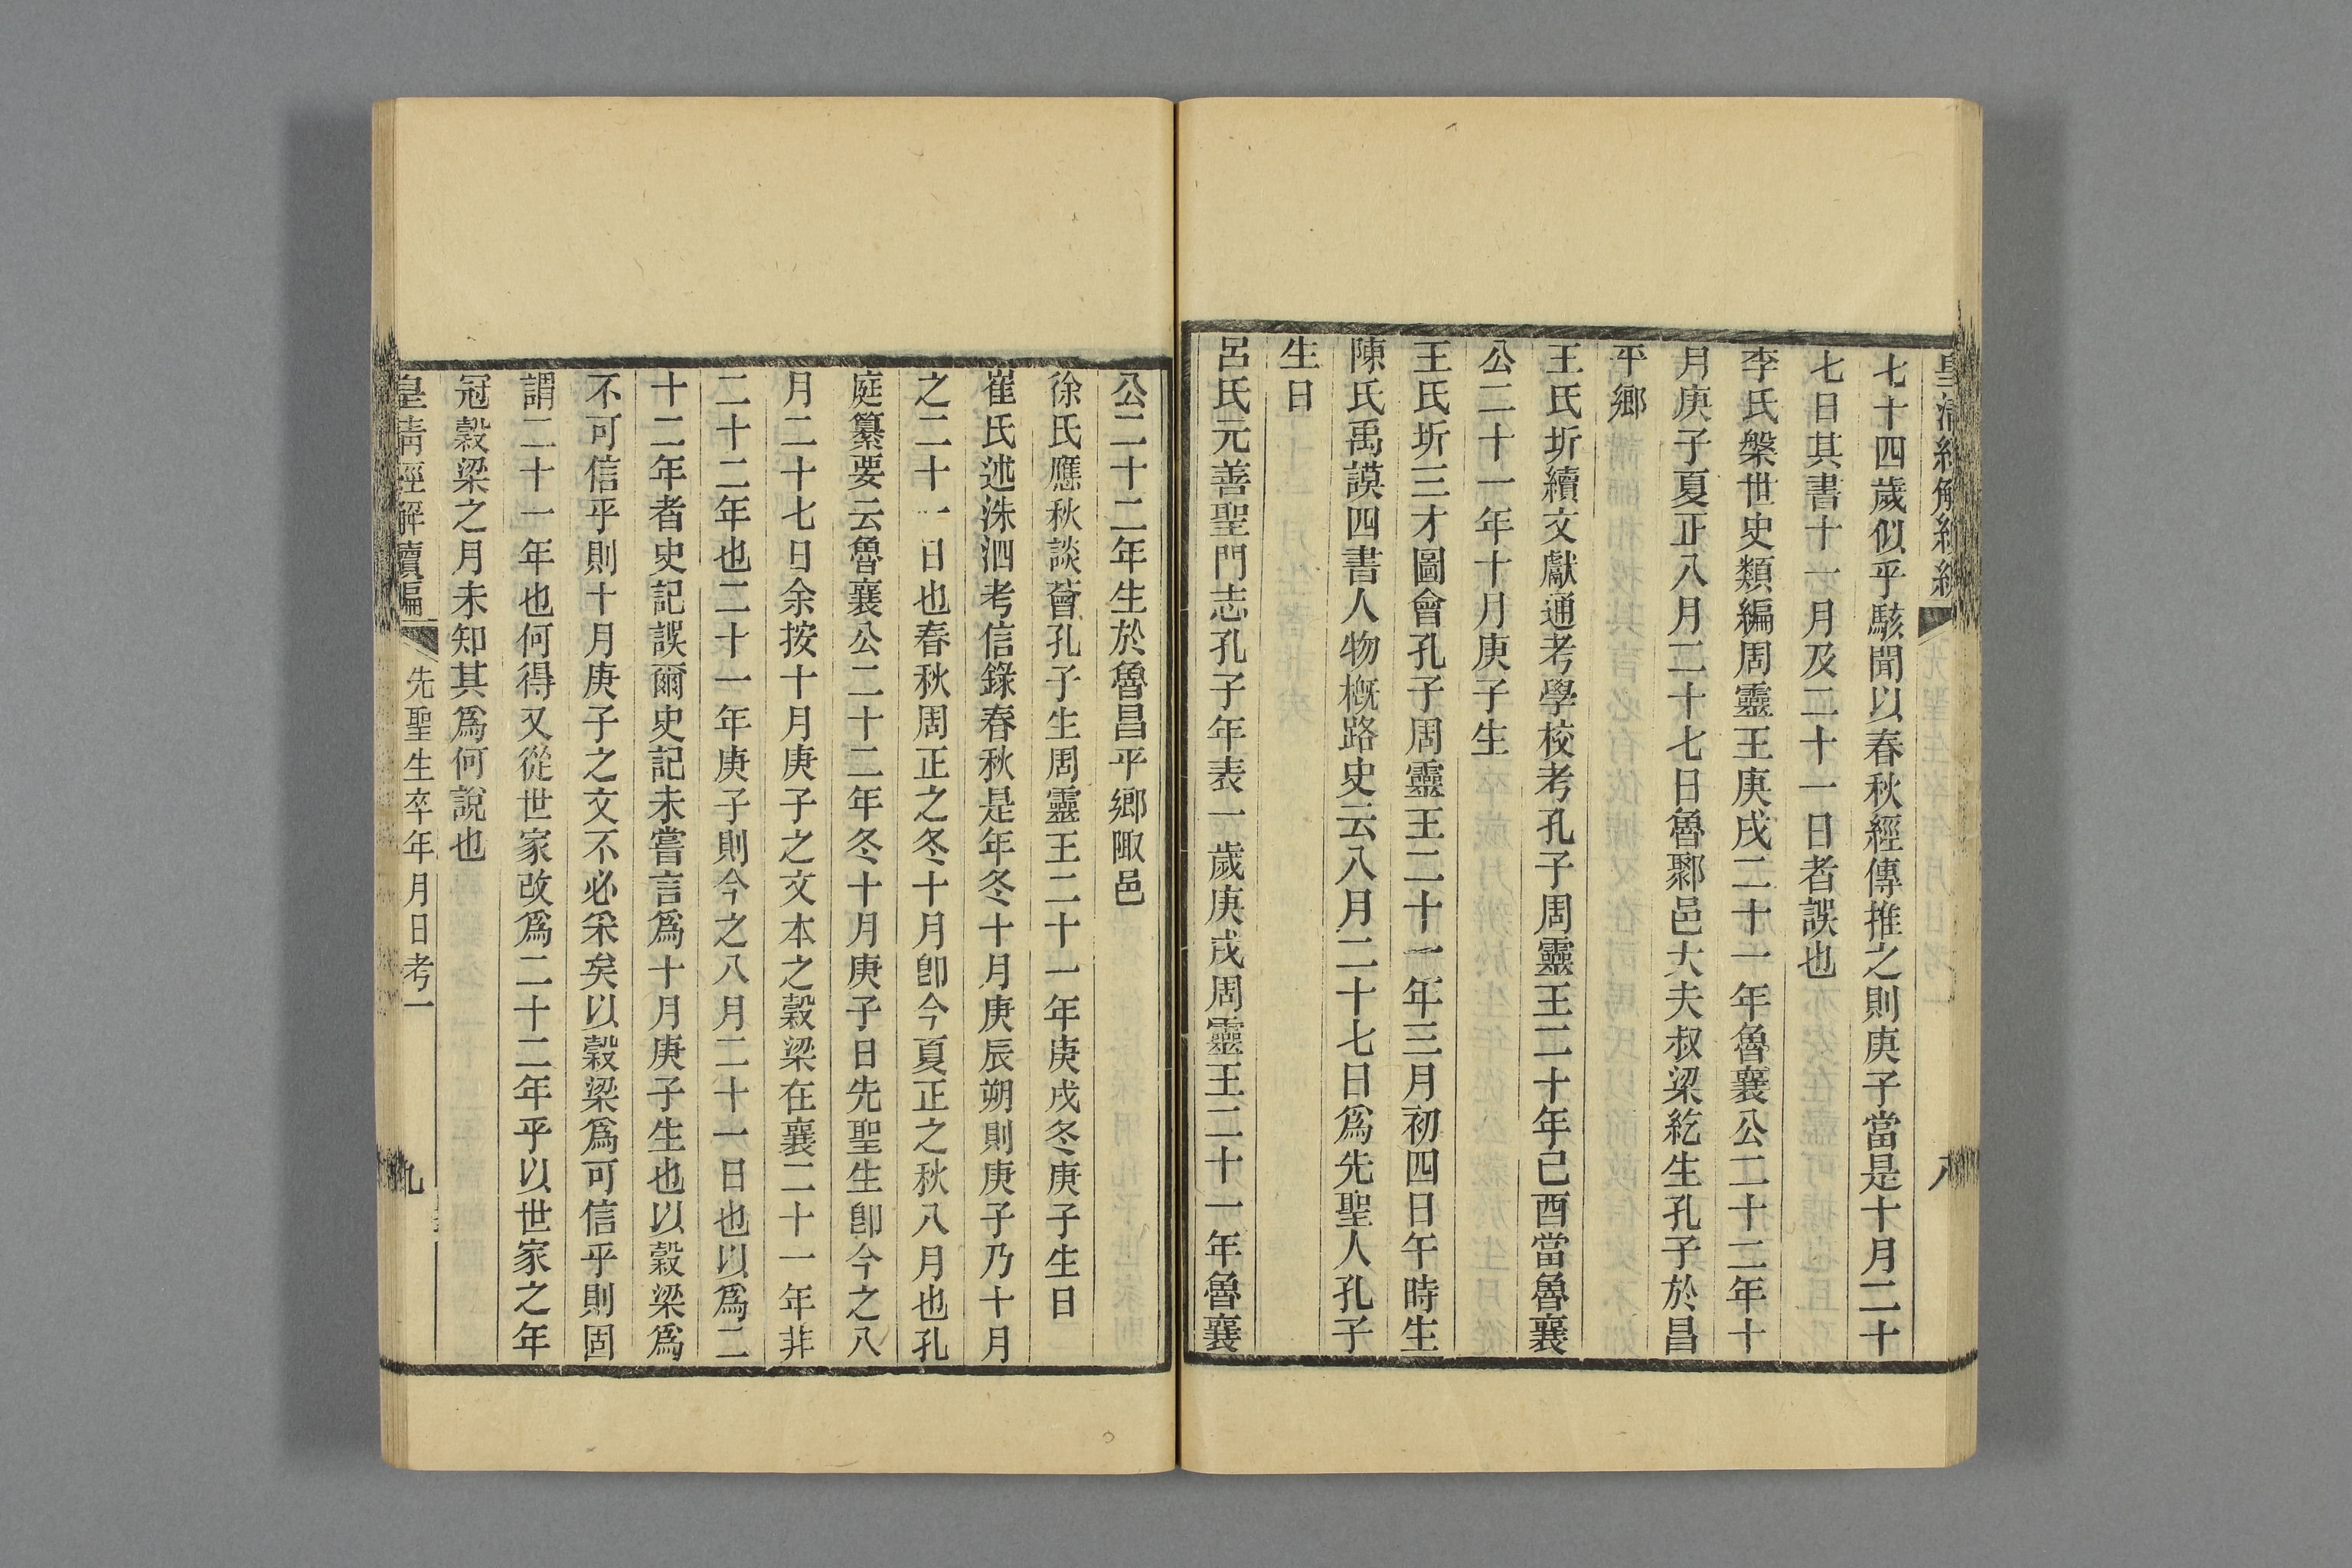 皇清經解續編
七十四歲似乎駭聞以春秋經傳推之則庚子當是十月二十
七日其書十一月及二十一日者誤也
李氏槃世史類編周靈王庚戌二十一年魯襄公二十二年十
月庚子夏正八月二十七日魯鄹邑大夫叔梁紇生孔子於昌
平鄉
王氏圻續文獻通考學校考孔子周靈王二十年己酉當魯襄
公二十一年十月庚子生
王氏圻三才圖會孔子周靈王二十一年三月初四日午時生
陳氏禹謨四書人物概路史云八月二十七日爲先聖人孔子
生日
呂氏元善聖門志孔子年表一歲庚戌周靈王二十一年魯襄
公二十二年生於魯昌平鄉陬邑
徐氏應秋談薈孔子生周靈王二十一年庚戌冬庚子生日
崔氏述洙泗考信錄春秋是年冬十月庚辰朔則庚子乃十月
之二十一日也春秋周正之冬十月卽今夏正之秋八月也孔
庭纂要云魯襄公二十二年冬十月庚子日先聖生卽今之八
月二十七日余按十月庚子之文本之穀梁在襄二十一年非
二十二年也二十一年庚子則今之八月二十一日也以爲二
十二年者史記誤爾史記未嘗言爲十月庚子生也以穀梁爲
不可信乎則十月庚子之文不必采矣以穀梁爲可信乎則固
謂二十一年也何得又從世家改爲二十二年乎以世家之年
冠穀梁之月未知其爲何說也
皇清經解續編
先聖生卒年月日考一
九